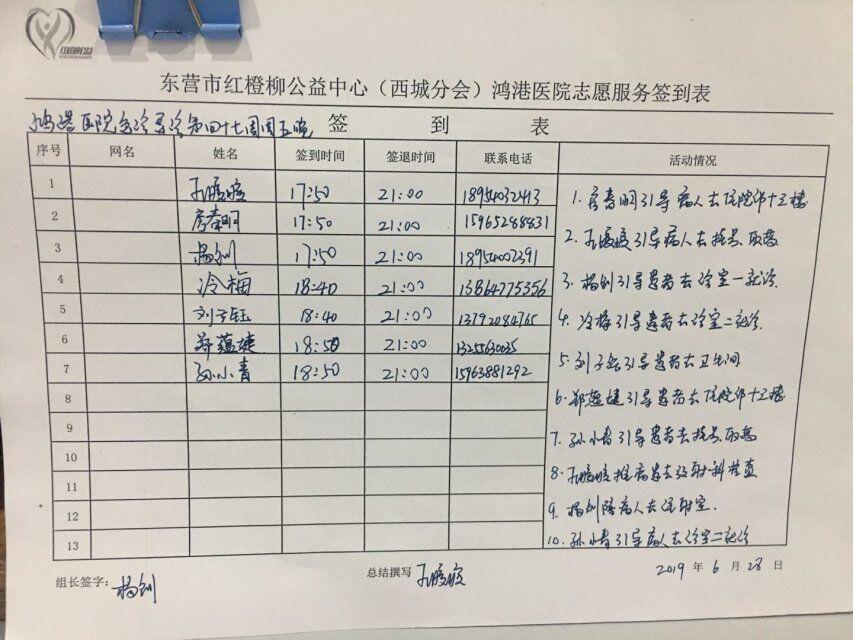 东营市红橙柳公益中心（西城分会）鸿港医院志愿服务签到表
鸿港医院急诊导诊第四十七周周五晚 签 到 表
序号 网名 姓名 签到时间 签退时间 联系电话 活动情况
1 17:50 21:00 18954032413
2 房春明 17:50 21:00 15965288831
3 杨钊 17:50 21:00 18954002391
4 冷梅 18:40 21:00 13864775356
5 刘子钰 18:40 21:00 13792084765
6 郑蕴婕 18:50 21:00 13255630035
7 孙小青 18:50 21:00 15963881292
8
9
10
11
12
13
1. 房春明引导病人去住院部十三楼
2. 引导病人去挂号取药
3. 杨钊引导患者去诊室一就诊.
4. 冷梅引导患者去诊室二就诊.
5. 刘子钰引导患者去卫生间
6. 郑蕴婕引导患者去住院部十三楼
7. 孙小青引导患者去挂号取药
8. 推病患去放射科检查
9. 杨钊陪病人去注射室.
10. 孙小青引导病人去诊室二就诊
组长签字： 杨钊 总结撰写 2019 年 6 月 28 日